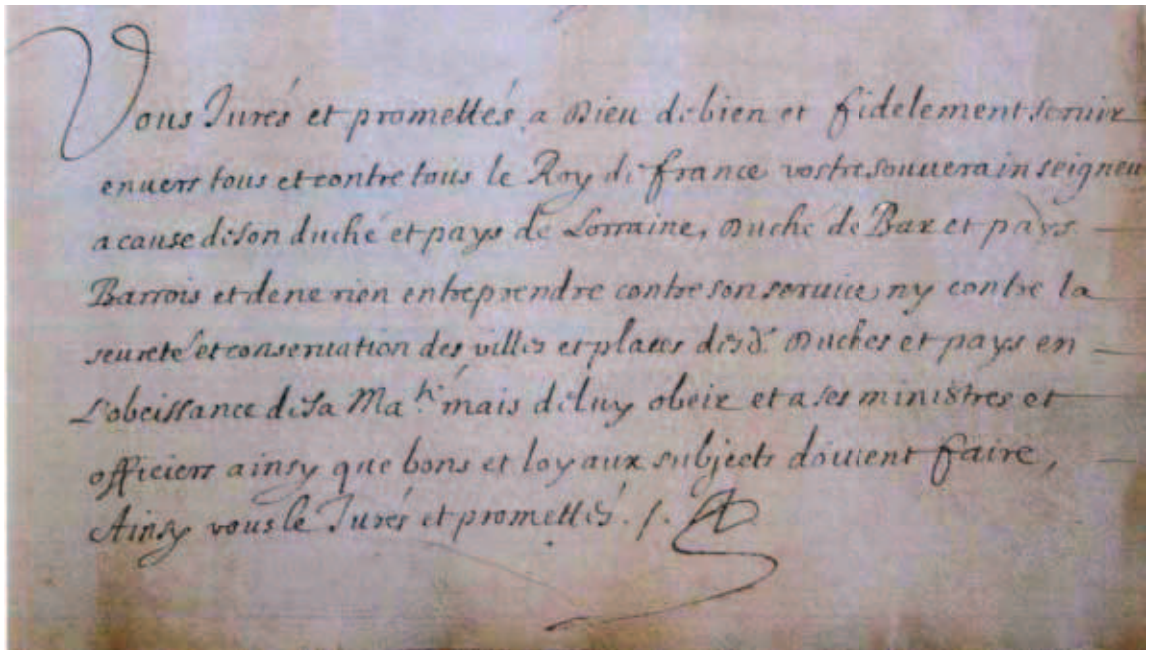 Vous Jurés et promettés a Dieu de bien et fidelement seruir
enuers tous et contre tous le Roy de france vostre souuerain seigneu
a cause de son duché et pays de Lorraine, Duché de Bar et pays
Barrois et de ne rien entreprendre contre son seruice, ny contre la
seureté et conseruation des villes et places desd. Duches et pays en
L'obeissance de sa Ma.té mais de luy obeir et a ses ministres et
officiers ainsy que bons et loyaux subjects doiuent faire,
Ainsy vous le Jurés et promettés. /.